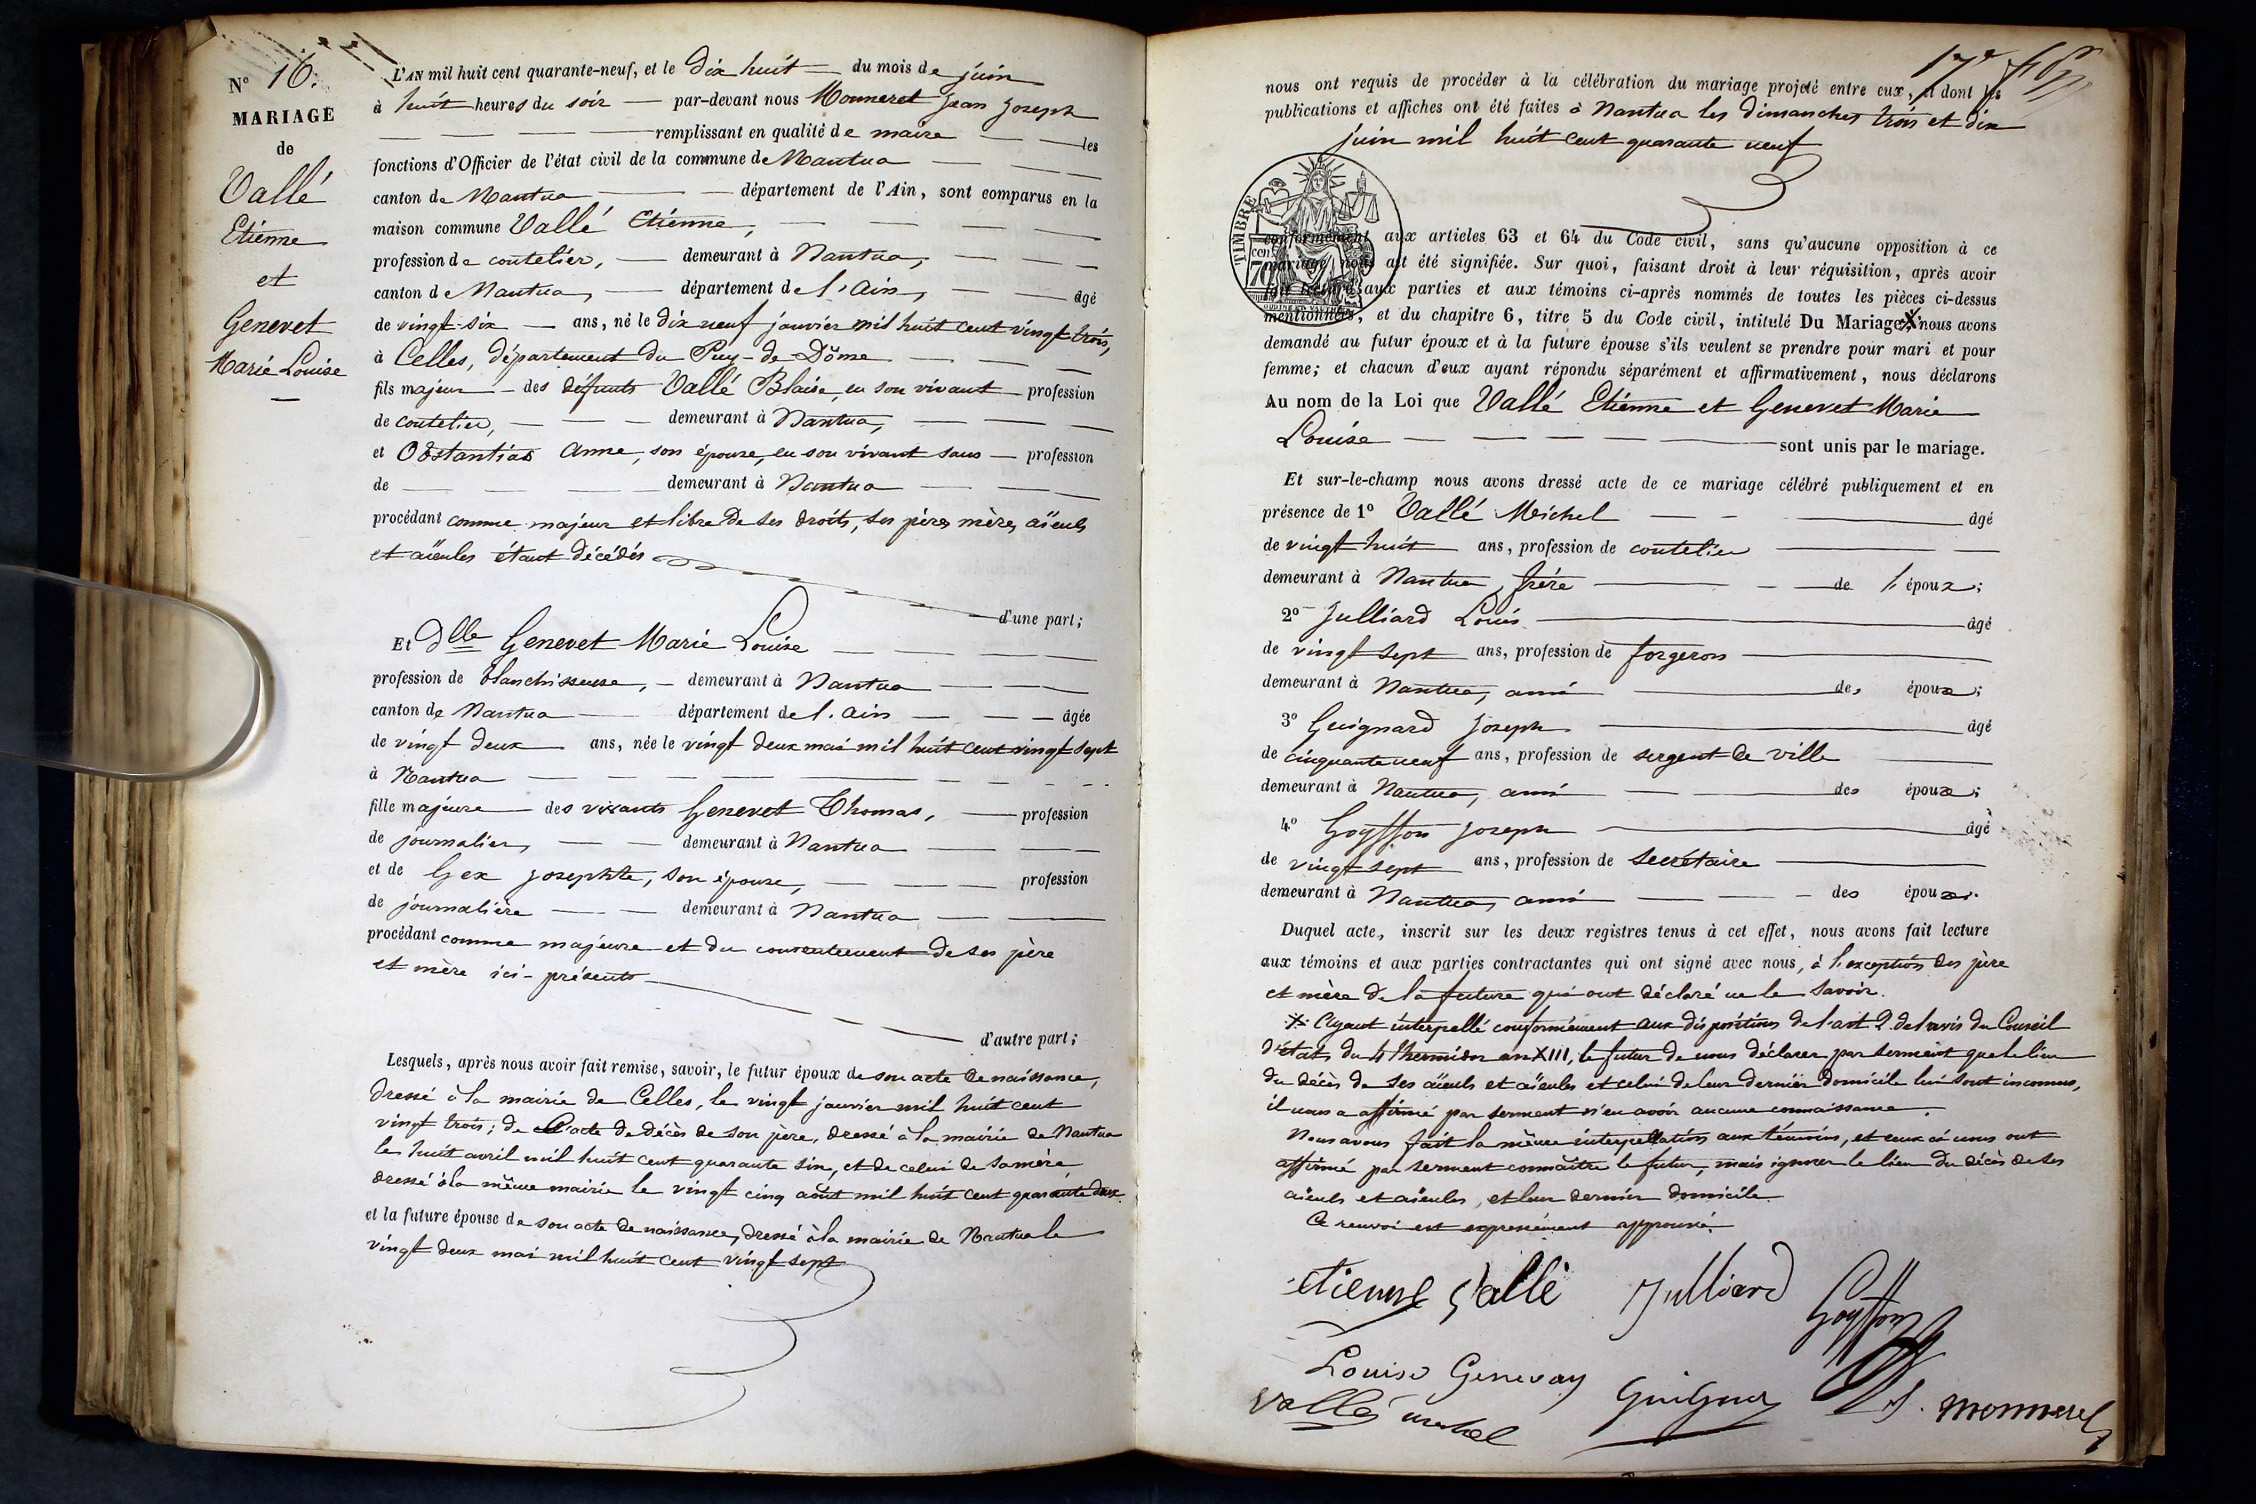 N° 16.
MARIAGE
de
Vallé
Etienne
et
Genevet
Marie Louise
L'AN mil huit cent quarante-neuf, et le dix huit du mois de juin
à huit heures du soir par-devant nous Monneret Jean Joseph
remplissant en qualité de maire les
fonctions d'Officier de l'état civil de la commune de Nantua
canton de Nantua département de l'Ain, sont comparus en la
maison commune Vallé Etienne,
profession de coutelier, demeurant à Nantua,
canton de Nantua, département de l'Ain, âgé
de vingt-six ans, né le dix neuf janvier mil huit cent vingt trois,
à Celles, département du Puy-de-Dôme
fils majeur des défunts Vallé Blaise, en son vivant profession
de coutelier, demeurant à Nantua,
et Obstantias Anne, son épouse, en son vivant sans profession
de demeurant à Nantua
procédant comme majeur et libre de ses droits, ses père, mère, aïeuls
et aïeules étant décédés
d'une part;
Et dlle Genevet Marie Louise
profession de blanchisseuse, demeurant à Nantua
canton de Nantua département de l'Ain âgée
de vingt deux ans, née le vingt deux mai mil huit cent vingt sept
à Nantua
fille majeure des vivants Genevet Thomas, profession
de journalier, demeurant à Nantua
et de Gex Josephte, son épouse, profession
de journalière demeurant à Nantua
procédant comme majeure et du consentement de ses père
et mère ici-présents
d'autre part;
Lesquels, après nous avoir fait remise, savoir, le futur époux de son acte de naissance,
dressé à la mairie de Celles, le vingt janvier mil huit cent
vingt trois; de l'acte de décès de son père, dressé à la mairie de Nantua
le huit avril mil huit cent quarante six, et de celui de sa mère
dressé à la même mairie le vingt cinq août mil huit cent quarante deux
et la future épouse de son acte de naissance, dressé à la mairie de Nantua le
vingt deux mai mil huit cent vingt sept
17e
nous ont requis de procéder à la célébration du mariage projeté entre eux, et dont les
publications et affiches ont été faites à Nantua les dimanches trois et dix
juin mil huit cent quarante neuf
TIMBRE
conformément aux articles 63 et 64 du Code civil, sans qu'aucune opposition à ce
mariage nous ait été signifiée. Sur quoi, faisant droit à leur réquisition, après avoir
fait lecture aux parties et aux témoins ci-après nommés de toutes les pièces ci-dessus
mentionnées, et du chapitre 6, titre 5 du Code civil, intitulé Du Mariage, X nous avons
demandé au futur époux et à la future épouse s'ils veulent se prendre pour mari et pour
femme; et chacun d'eux ayant répondu séparément et affirmativement, nous déclarons
Au nom de la Loi que Vallé Etienne et Genevet Marie
Louise sont unis par le mariage.
Et sur-le-champ nous avons dressé acte de ce mariage célébré publiquement et en
présence de 1° Vallé Michel âgé
de vingt huit ans, profession de coutelier
demeurant à Nantua, frère de l'époux;
2° Julliard Louis âgé
de vingt sept ans, profession de forgeron
demeurant à Nantua, ami des époux;
3° Guignard Joseph âgé
de cinquante neuf ans, profession de sergent de ville
demeurant à Nantua, ami des époux;
4° Goyffon Joseph âgé
de vingt sept ans, profession de secrétaire
demeurant à Nantua, ami des époux.
Duquel acte, inscrit sur les deux registres tenus à cet effet, nous avons fait lecture
aux témoins et aux parties contractantes qui ont signé avec nous, à l'exception des père
et mère de la future qui ont déclaré ne le savoir.
X Ayant interpellé conformément aux dispositions de l'art 2 de l'avis du Conseil
d'état, du 4 thermidor an XIII, le futur de nous déclarer par serment que le lieu
du décès de ses aïeuls et aïeules et celui de leur dernier domicile lui sont inconnus,
il nous a affirmé par serment n'en avoir aucune connaissance.
Nous avons fait la même interpellation aux témoins, et ceux-ci nous ont
affirmé par serment connaître le futur, mais ignorer le lieu du décès de ses
aïeuls et aïeules, et leur dernier domicile
Ce renvoi est expressément approuvé.
etienne Vallé Julliard Goyffon
Louise Genevay
Vallé michel Guignard J. monneret